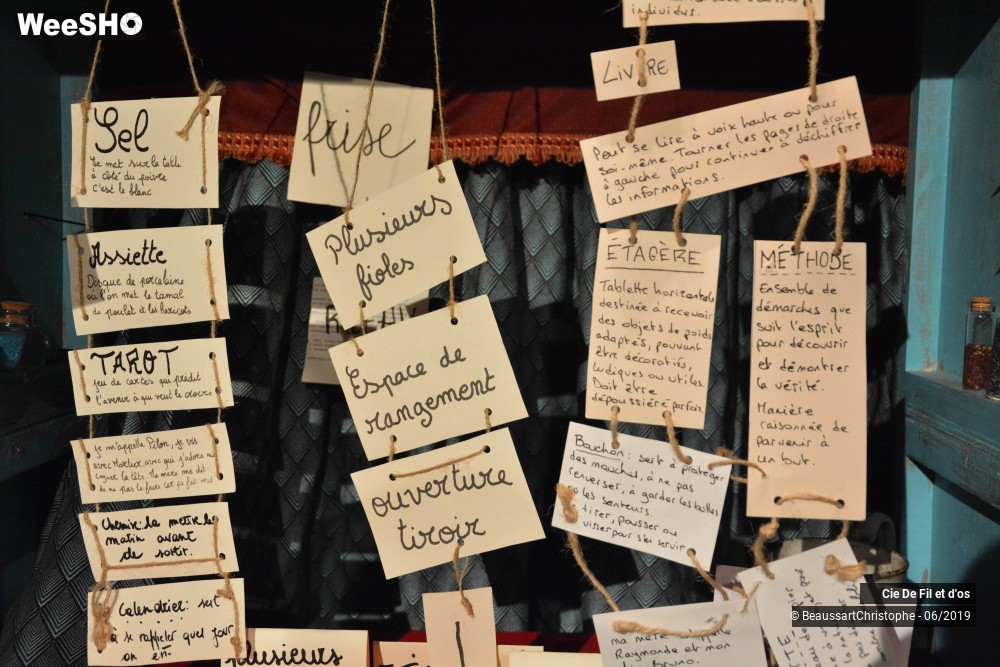 WeeSHO
individus.
LIVRE
Peut se lire à voix haute ou pour
soi-même. Tourner les pages de droite
à gauche pour continuer à déchiffrer
les informations.
Sel
Se met sur la table
à côté du poivre
c'est le blanc
Assiette
Disque de porcelaine
où l'on met le tamal
de poulet et les haricots
TAROT
jeu de cartes qui prédit
l'avenir à qui veut le croire
je m'appelle Pilon, je vis
avec Mortier, avec qui j'adore
la tête. Ma mère me dit
de ne pas le faire car
Chemise: la mettre le
matin avant
de sortir.
Calendrier: sert
à se rappeler quel jour
on est
frise
Plusieurs
fioles
Espace de
rangement
ouverture
tiroir
plusieurs
ÉTAGÈRE
Tablette horizontale
destinée à recevoir
des objets de poids
adaptés, pouvant
être décoratifs,
ludiques ou utiles.
Doit être
dépoussiéré parfois.
MÉTHODE
Ensemble de
démarches que
suit l'esprit
pour découvrir
et démontrer
la vérité.
Manière
raisonnée de
parvenir à
un but.
Bouchon: sert à protéger
des mouches, à ne pas
renverser, à garder les bulles
les senteurs.
tirer, pousser ou
visser pour s'en servir
ma mère
Raymonde et mon
Bruno.
Cie De Fil et d'os
© BeaussartChristophe - 06/2019